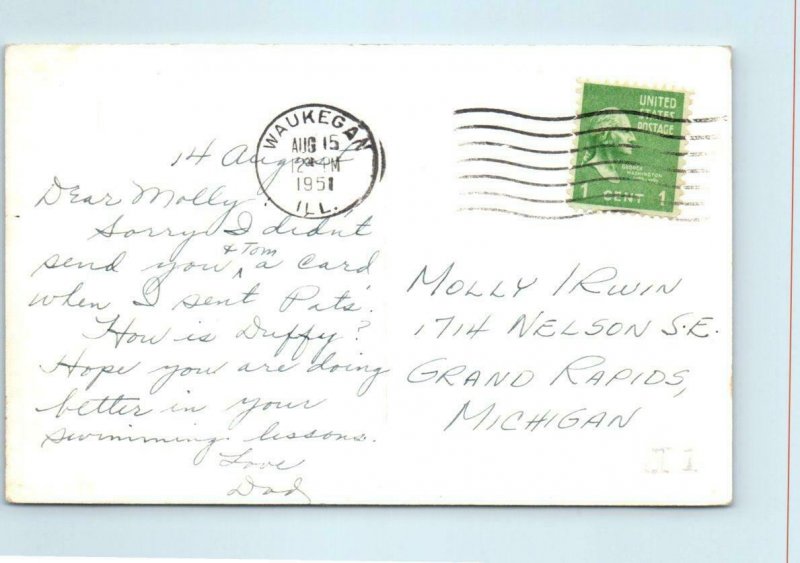 WAUKEGAN
AUG 15
12 PM
1951
ILL.
UNITED
STATES
POSTAGE
GEORGE
WASHINGTON
1 CENT 1
14 August
Dear Molly
Sorry I didn't
& Tom
send you ^ a card
when I sent Pat's.
How is Duffy?
Hope you are doing
better in your
swimming lessons.
Love
Dad
MOLLY IRWIN
1714 NELSON S.E.
GRAND RAPIDS,
MICHIGAN